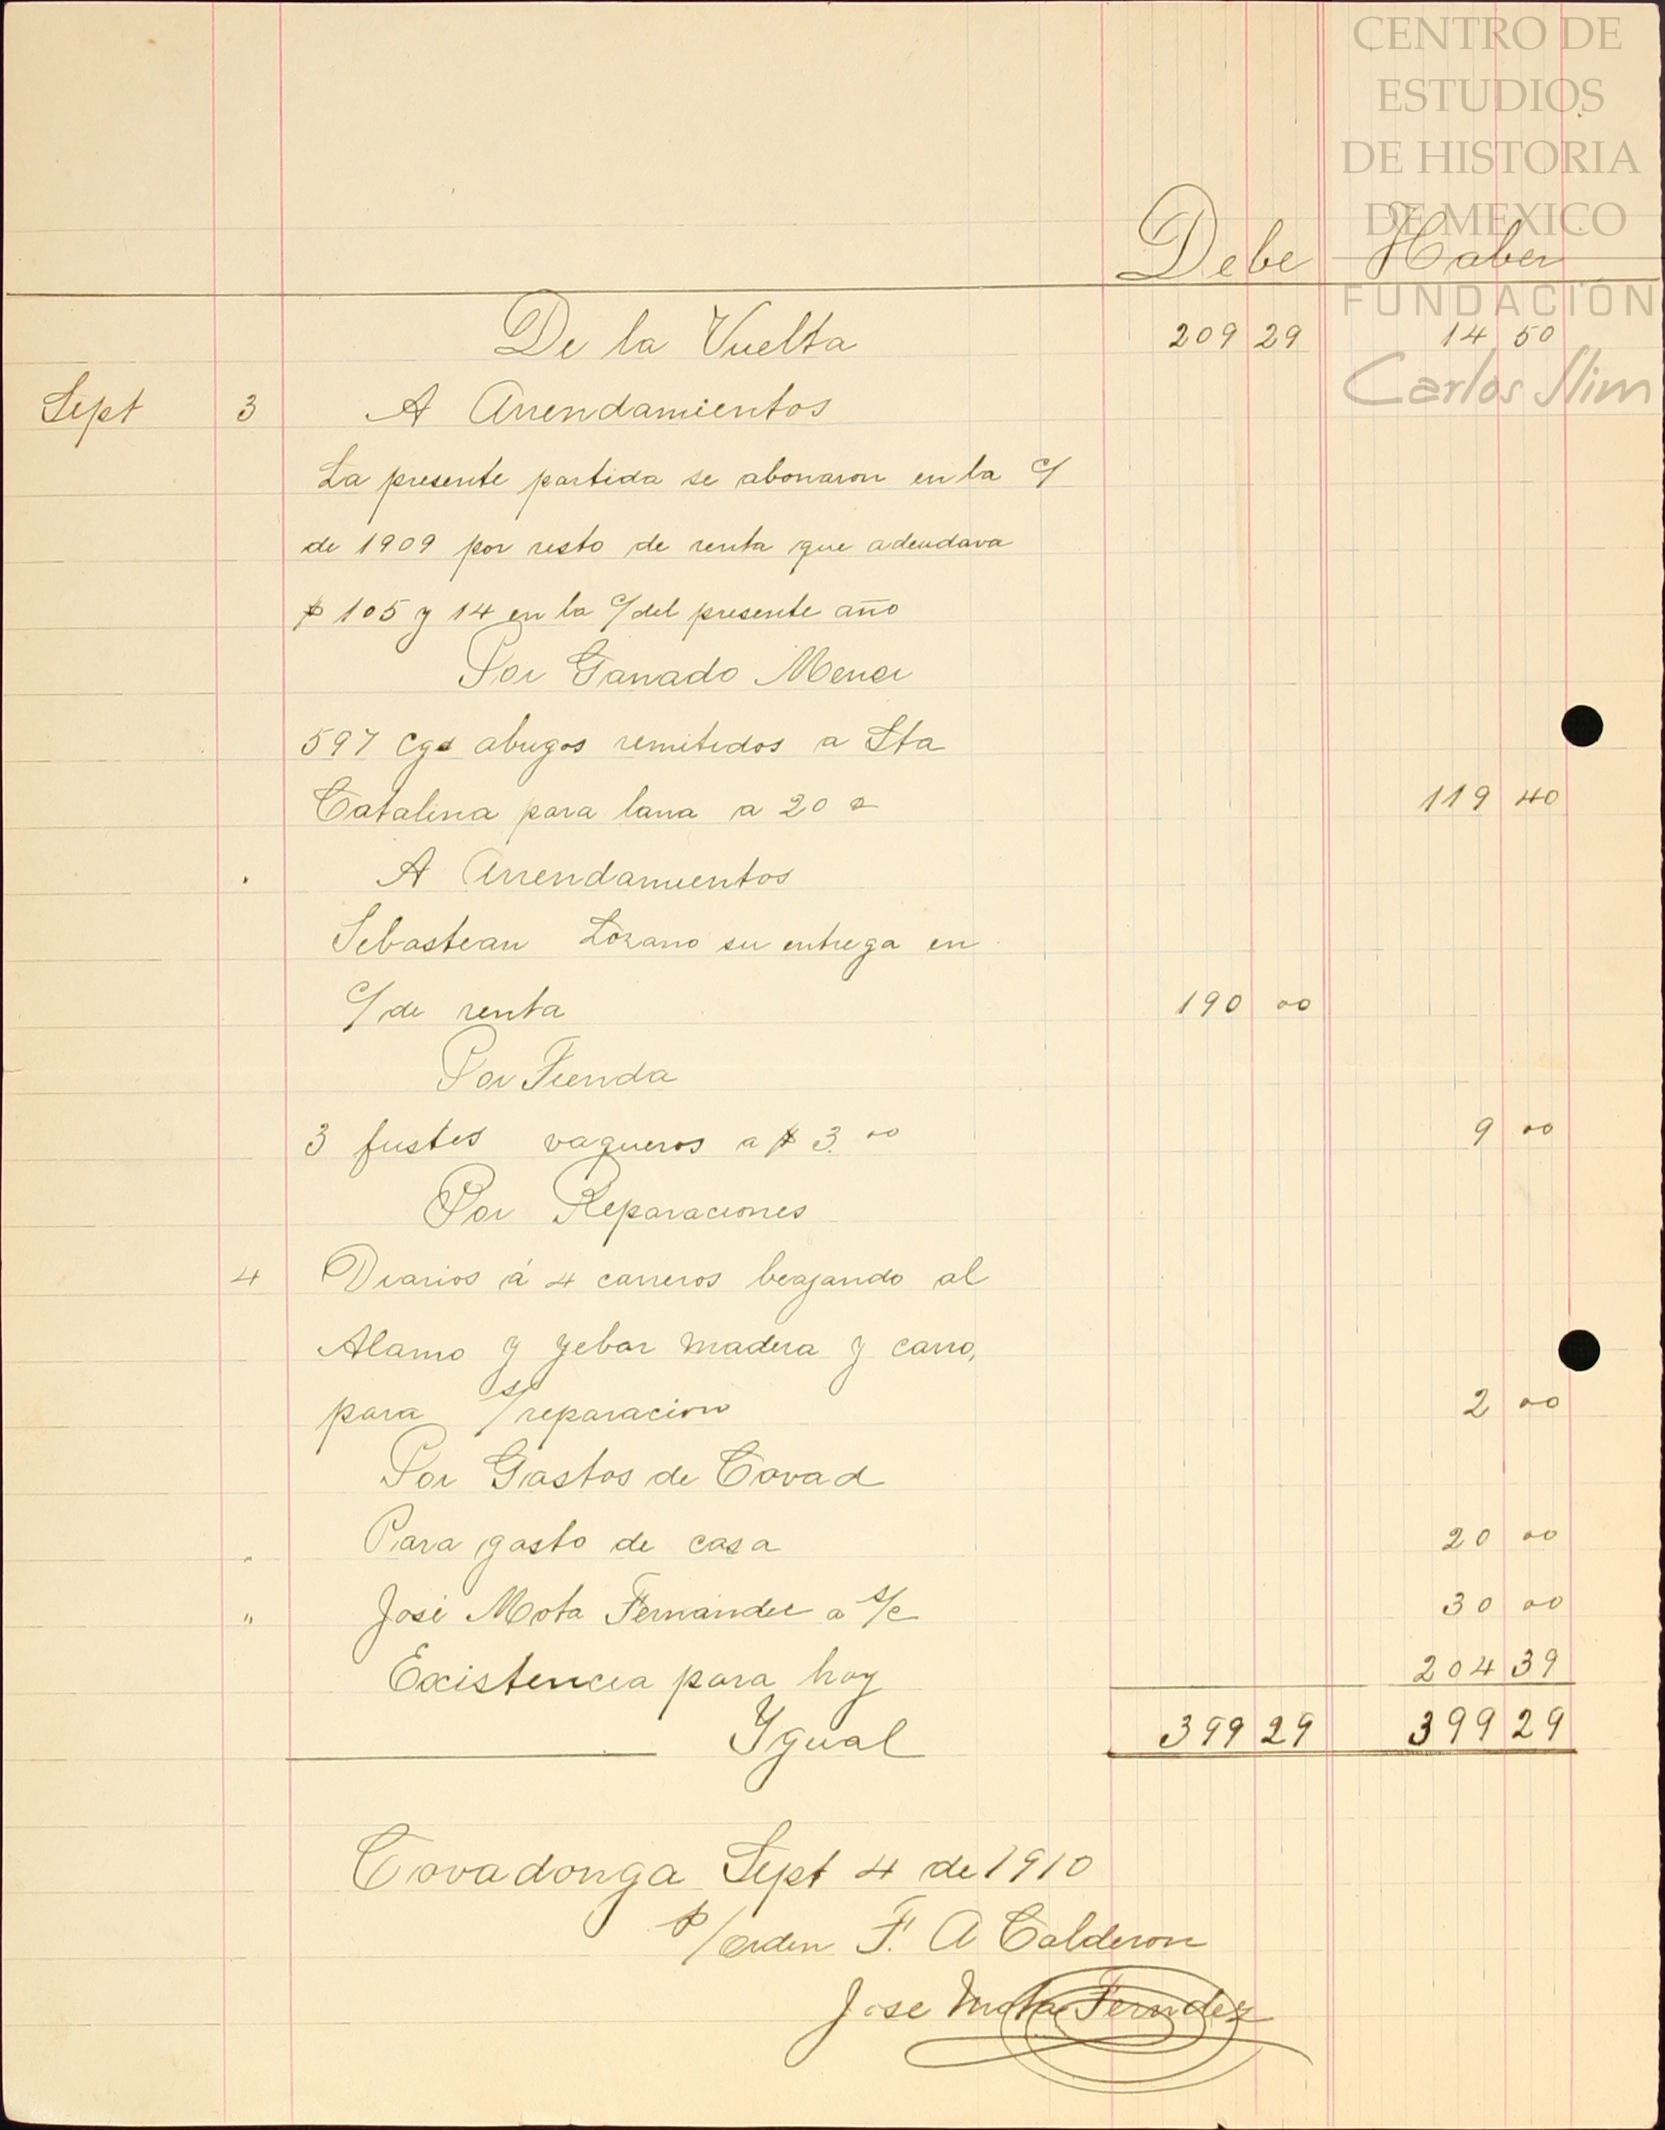 CENTRO DE
ESTUDIOS
DE HISTORIA
DE MEXICO
FUNDACIÓN
Carlos Slim
Debe Haber
De la Vuelta 209 29 14 50
Sept 3 A Arrendamientos
La presente partida se abonaron en la c/
de 1909 por resto de renta que adeudava
$ 105 y 14 en la c/ del presente año
Por Ganado Menor
597 cgs abugos remitidos a Sta
Catalina para lana a 20 ¢ 119 40
A Arrendamientos
Sebastian Lozano su entrega en
c/ de renta 190 00
Por Tienda
3 fustes vaqueros a $ 3.00 9 00
Por Reparaciones
4 Diarios á 4 carreros beajando al
Alamo y yebar madera y carro,
para s/ reparacion 2 00
Por Gastos de Covad
" Para gasto de casa 20 00
" José Mota Fernandez a s/c 30 00
Existencia para hoy 204 39
Ygual 399 29 399 29
Covadonga Sept 4 de 1910
p/ orden F. A Calderon
Jose Mota Ferndez